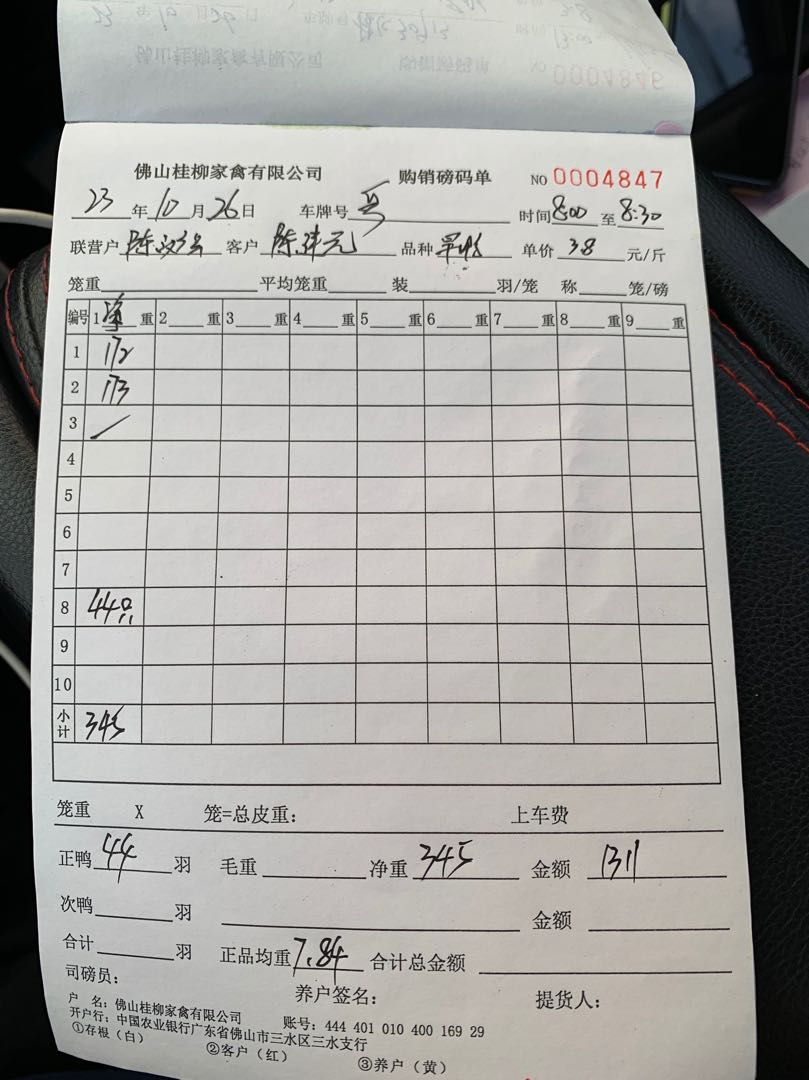 NO 0004846
佛山桂柳家禽有限公司 购销磅码单 NO 0004847
23年10月26日 车牌号 时间8:00至8:30
联营户 陈 客户 陈 元 品种 单价 3.8 元/斤
笼重 平均笼重 装 羽/笼 称 笼/磅
编号 1 净 重 2 重 3 重 4 重 5 重 6 重 7 重 8 重 9 重
1 172
2 173
3
4
5
6
7
8 44只
9
10
小计 345
笼重 X 笼=总皮重: 上车费
正鸭 44 羽 毛重 净重 345 金额 1311
次鸭 羽 金额
合计 羽 正品均重 7.84 合计总金额
司磅员: 养户签名: 提货人:
户 名: 佛山桂柳家禽有限公司 账号: 444 401 010 400 169 29
开户行: 中国农业银行广东省佛山市三水区三水支行
①存根(白) ②客户(红) ③养户(黄)